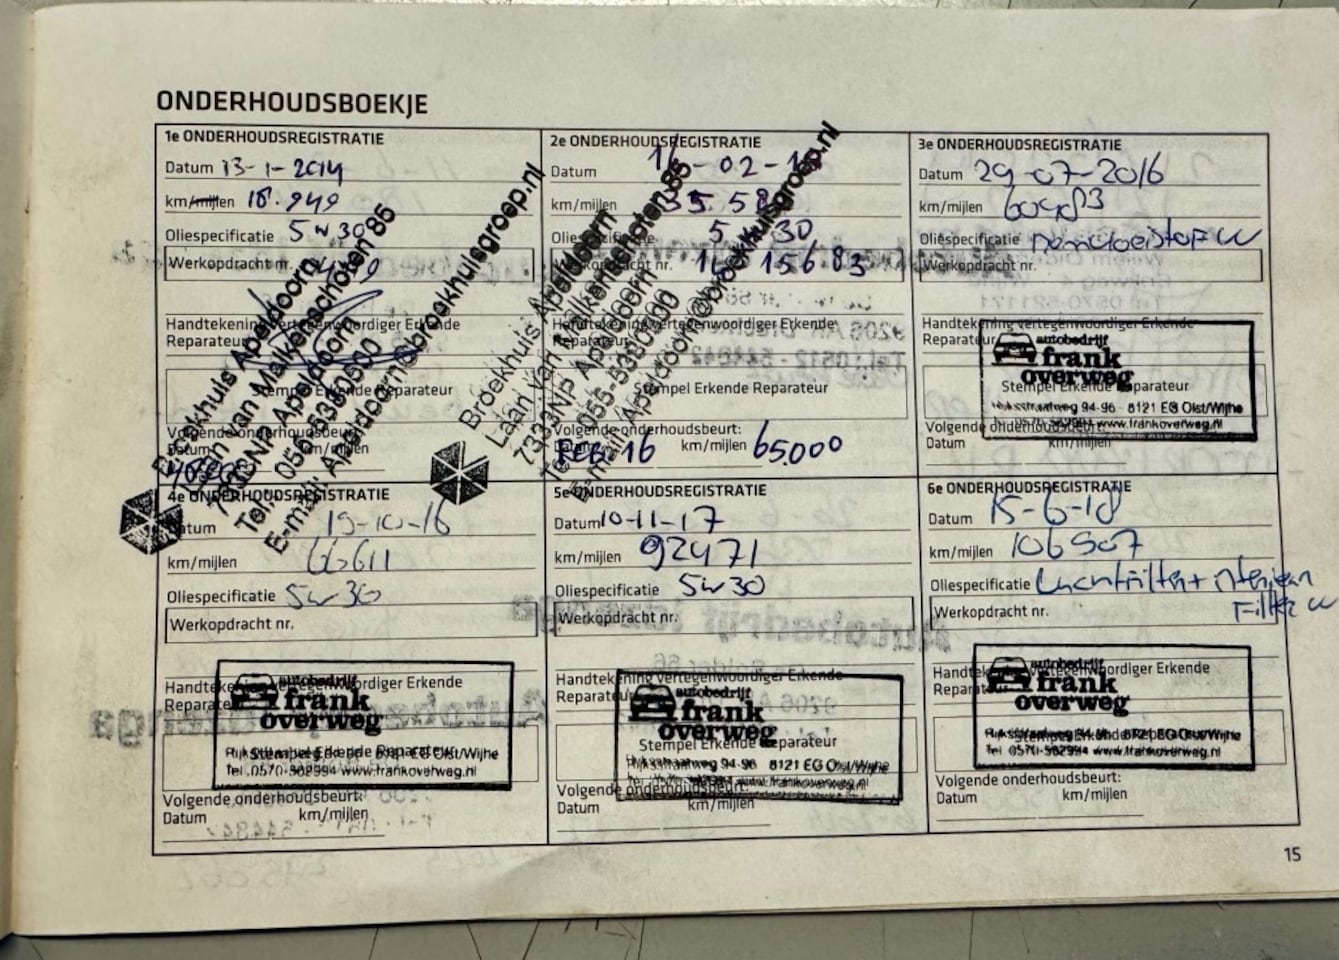 ONDERHOUDSBOEKJE
1e ONDERHOUDSREGISTRATIE
Datum 13-1-2014
km/mijlen 18.949
Oliespecificatie 5w30
Werkopdracht nr.
Handtekening vertegenwoordiger Erkende
Reparateur
Stempel Erkende Reparateur
Broekhuis Apeldoorn
Laan van Malkenschoten 85
7333NP Apeldoorn
E-mail: Apeldoorn@broekhuisgroep.nl
Volgende onderhoudsbeurt:
Datum km/mijlen
2e ONDERHOUDSREGISTRATIE
Datum 02
km/mijlen 35.58
Oliespecificatie 5 30
Werkopdracht nr. 15683
Handtekening vertegenwoordiger Erkende
Reparateur
Stempel Erkende Reparateur
Broekhuis Apeldoorn
Laan van Malkenschoten 85
7333NP Apeldoorn
Tel. 055-5380500
E-mail: Apeldoorn@broekhuisgroep.nl
Volgende onderhoudsbeurt:
Datum FEB 16 km/mijlen 65.000
3e ONDERHOUDSREGISTRATIE
Datum 29-07-2016
km/mijlen
Oliespecificatie
Werkopdracht nr.
Handtekening vertegenwoordiger Erkende
Reparateur
autobedrijf
frank
overweg
Stempel Erkende Reparateur
Rijksstraatweg 94-96 8121 EG Olst/Wijhe
www.frankoverweg.nl
Volgende onderhoudsbeurt:
Datum km/mijlen
4e ONDERHOUDSREGISTRATIE
Datum 19-10-16
km/mijlen 66611
Oliespecificatie 5w30
Werkopdracht nr.
Handtekening vertegenwoordiger Erkende
Reparateur
autobedrijf
frank
overweg
Stempel Erkende Reparateur
8121 EG Olst/Wijhe
Tel. 0570-562994 www.frankoverweg.nl
Volgende onderhoudsbeurt:
Datum km/mijlen
5e ONDERHOUDSREGISTRATIE
Datum 10-11-17
km/mijlen 92471
Oliespecificatie 5w30
Werkopdracht nr.
Handtekening vertegenwoordiger Erkende
Reparateur
autobedrijf
frank
overweg
Stempel Erkende Reparateur
Rijksstraatweg 94-96 8121 EG Olst/Wijhe
www.frankoverweg.nl
Volgende onderhoudsbeurt:
Datum km/mijlen
6e ONDERHOUDSREGISTRATIE
Datum 15-6-18
km/mijlen 106507
Oliespecificatie Luchtfilter + interieur
Filter
Werkopdracht nr.
Handtekening vertegenwoordiger Erkende
Reparateur
autobedrijf
frank
overweg
Stempel Erkende Reparateur
Rijksstraatweg 94-96 8121 EG Olst/Wijhe
Tel. 0570-562994 www.frankoverweg.nl
Volgende onderhoudsbeurt:
Datum km/mijlen
15